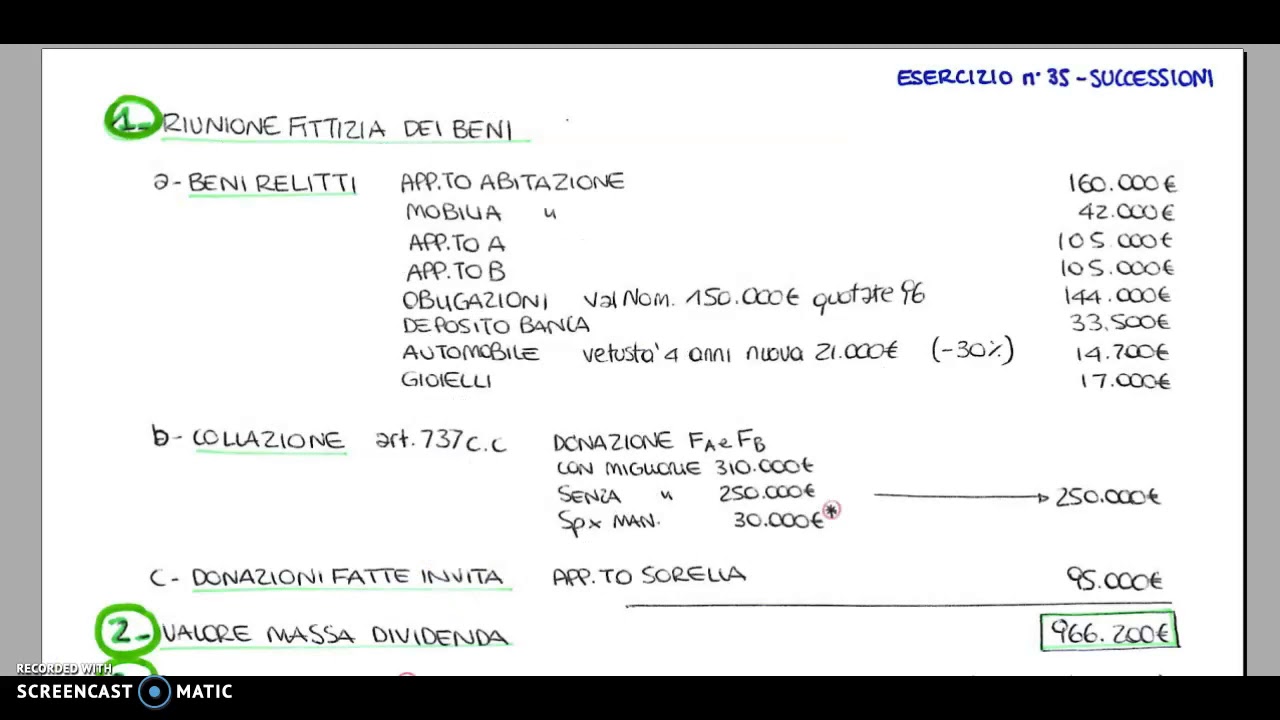 ESERCIZIO n° 35 - SUCCESSIONI
1- RIUNIONE FITTIZIA DEI BENI
a- BENI RELITTI APP.TO ABITAZIONE 160.000€
MOBILIA " 42.000€
APP.TO A 105.000€
APP.TO B 105.000€
OBLIGAZIONI val Nom. 150.000€ quotate 96 144.000€
DEPOSITO BANCA 33.500€
AUTOMOBILE vetusta' 4 anni nuova 21.000€ (-30%) 14.700€
GIOIELLI 17.000€
b- COLLAZIONE art. 737 C.C DONAZIONE FA e FB
CON MIGLIORIE 310.000€
SENZA " 250.000€ → 250.000€
Sp x MAN. 30.000€ *
C- DONAZIONI FATTE IN VITA APP.TO SORELLA 95.000€
2- VALORE MASSA DIVIDENDA 966.200€
RECORDED WITH
SCREENCAST MATIC